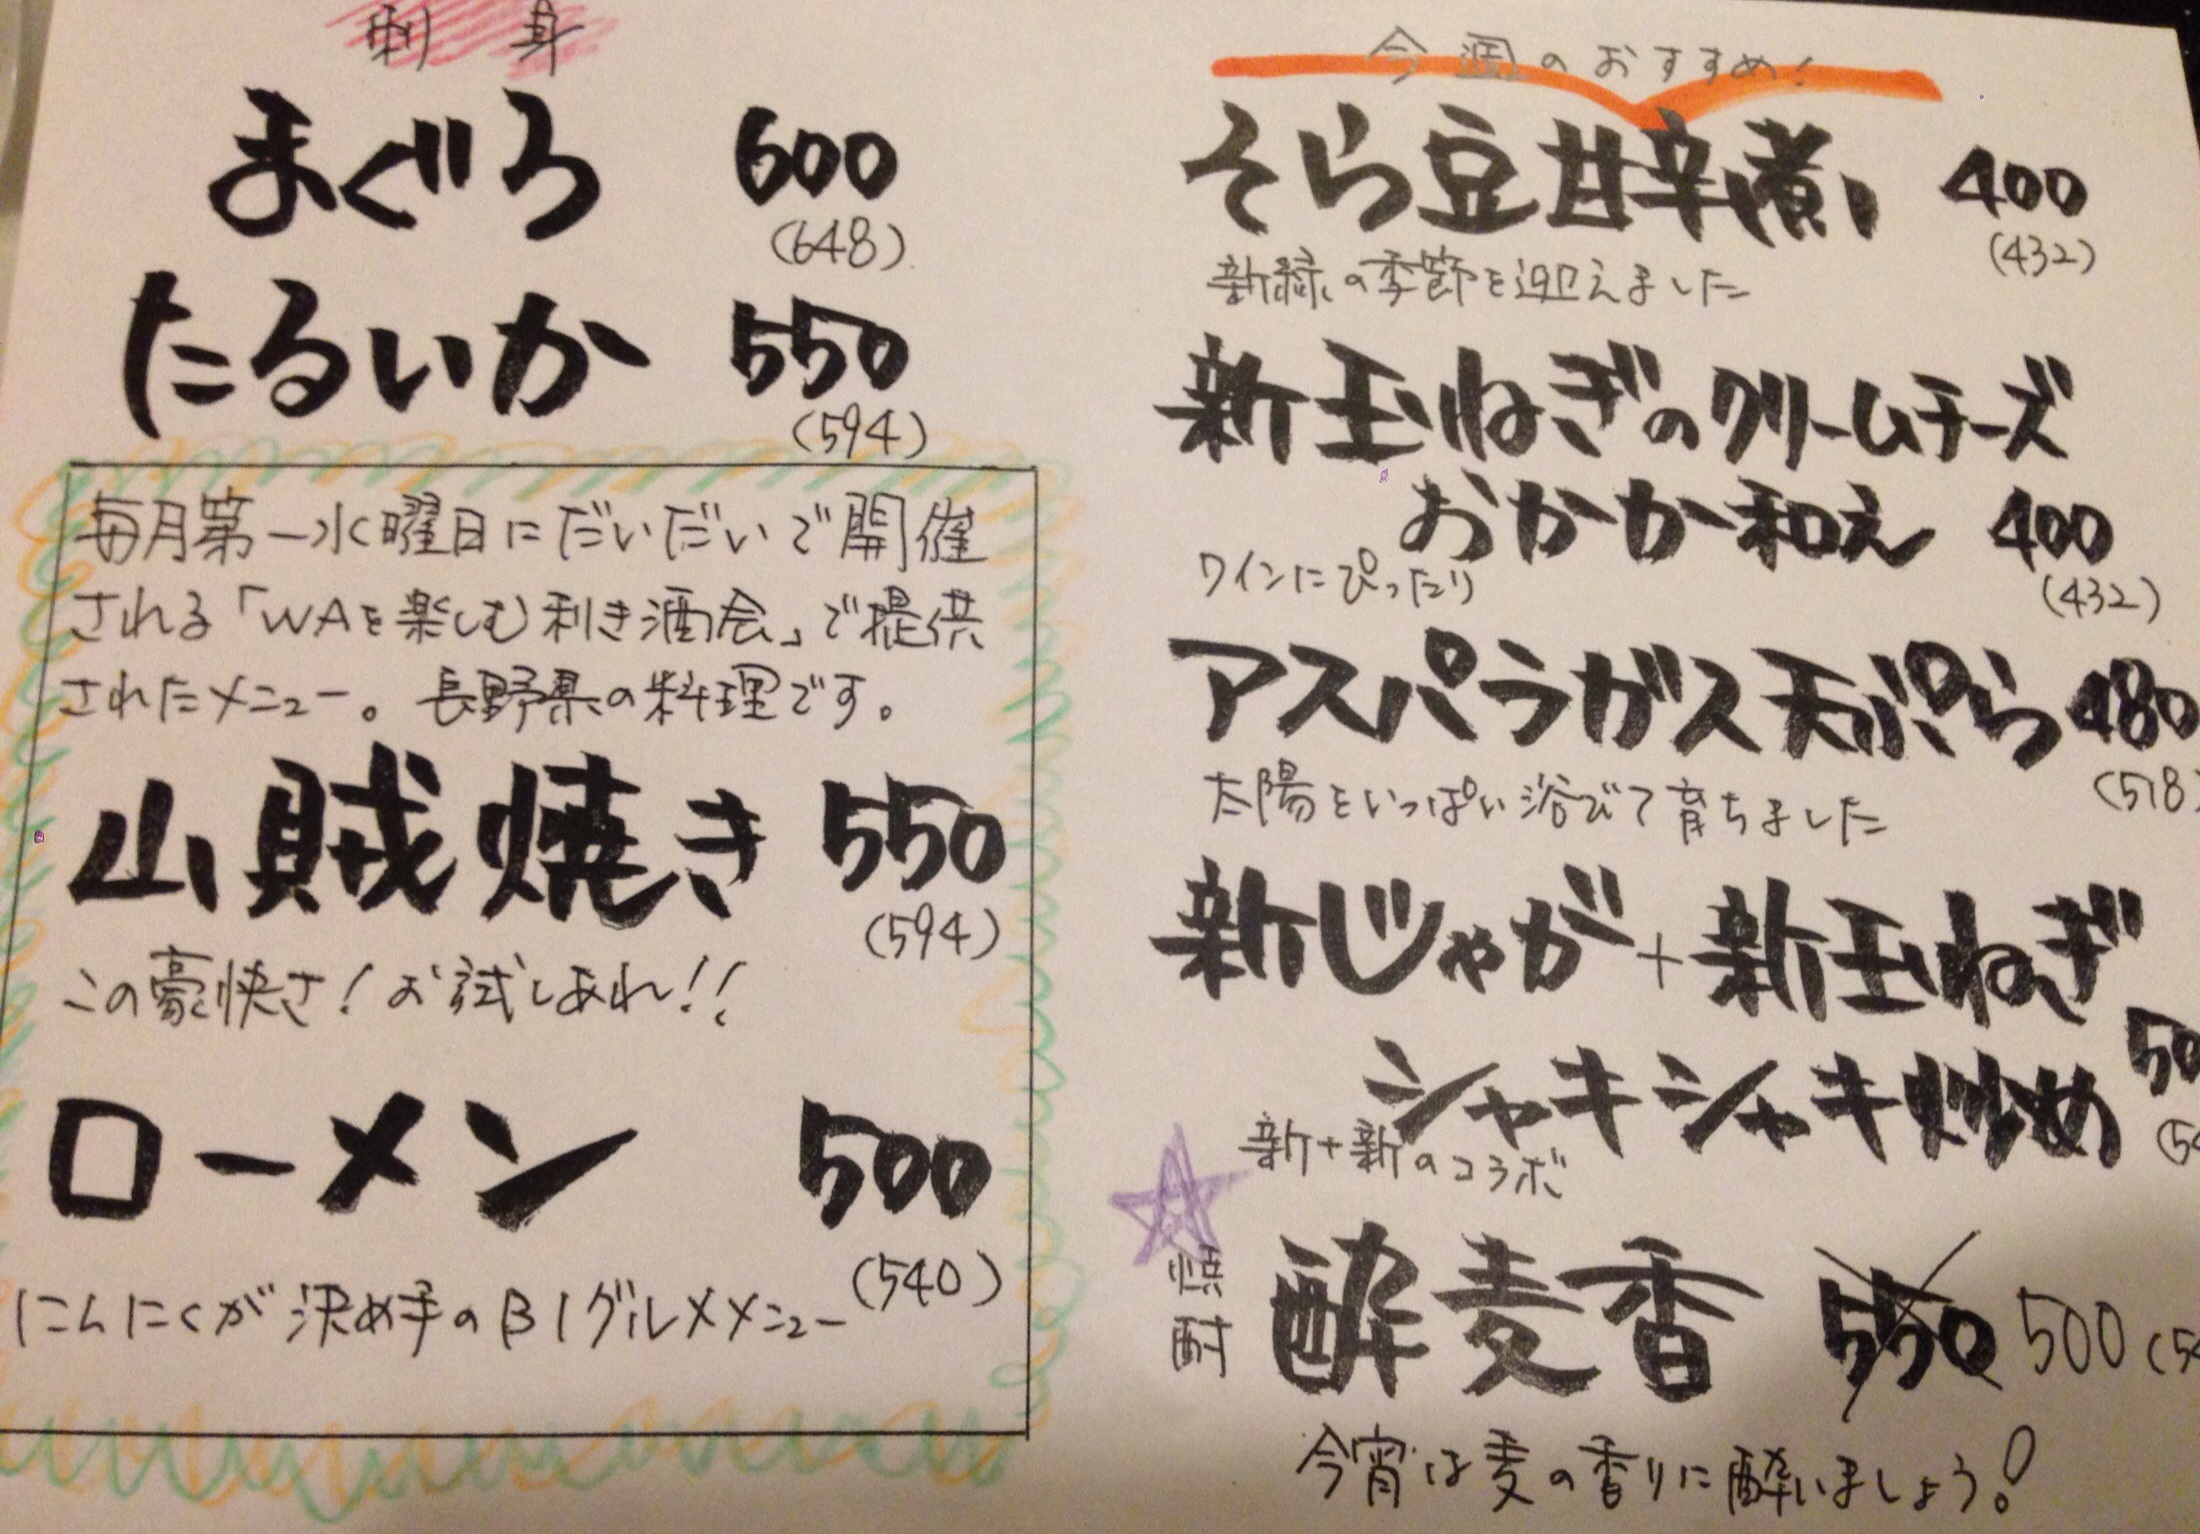 刺身
まぐろ 600
(648)
たるいか 550
(594)
毎月第一水曜日にだいだいで開催
される「WAを楽しむ利き酒会」で提供
されたメニュー。長野県の料理です。
山賊焼き 550
(594)
この豪快さ!お試しあれ!!
ローメン 500
(540)
にんにくが決め手のB1グルメメニュー
今週のおすすめ!
そら豆甘辛煮 400
(432)
新緑の季節を迎えました
新玉ねぎのクリームチーズ
おかか和え 400
(432)
ワインにぴったり
アスパラガス天ぷら 480
(518)
太陽をいっぱい浴びて育ちました
新じゃが+新玉ねぎ
シャキシャキ炒め 50
(54
新+新のコラボ
焼酎
酔麦香 550 500 (54
今宵は麦の香りに酔いましょう!